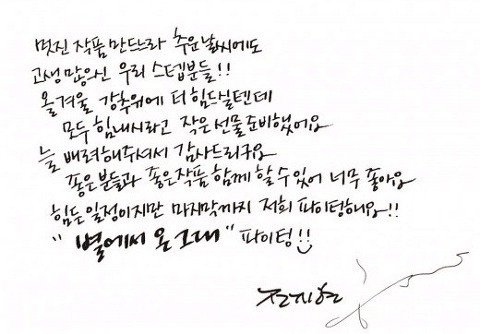 멋진 작품 만드느라 추운날씨에도
고생 많으신 우리 스텝분들!!
올겨울 강추위에 더 힘드실텐데
모두 힘내시라고 작은 선물 준비했어요
늘 배려해주셔서 감사드리구요
좋은분들과 좋은작품 함께 할 수 있어 너무 좋아요
힘든 일정이지만 마지막까지 저희 파이팅해요!!
"별에서 온 그대" 파이팅!!
전지현